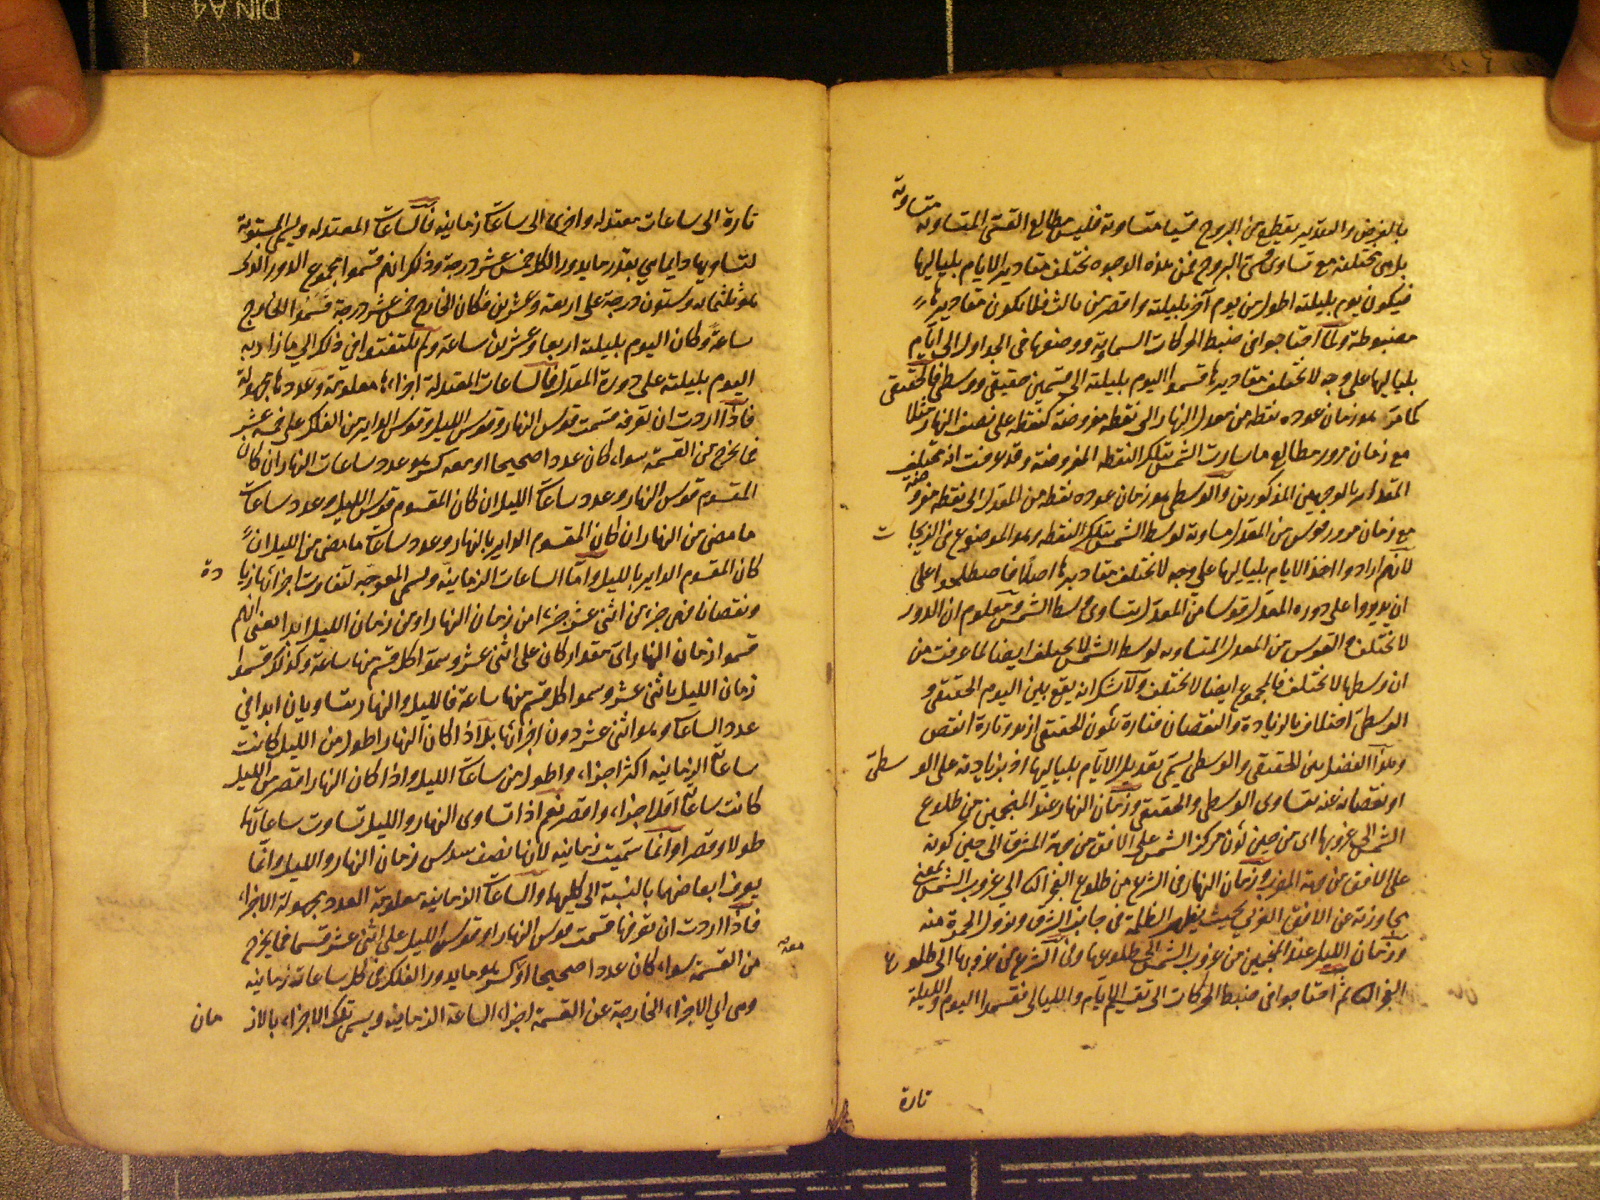 بالفرض والتقدير يقطع من البروج قسيا متساوية فليس مطالع القسى المتساوية متساوية
بل هى مختلفة مع تساوى قسى البروج فمن هذه الوجوه تختلف مقادير الايام بلياليها
فيكون يوم بليلته اطول من يوم آخر بليلته واقصر من ثالث فلا تكون مقاديرها
مضبوطة ولما احتاجوا فى ضبط الحركات السماوية ووضعها فى الجداول الى ايام
بلياليها على وجه لا تختلف مقاديرها قسموا اليوم بليلته الى قسمين حقيقى ووسطى فالحقيقى
كما مر هو زمان عوده نقطة من معدل النهار الى نقطة مفروضة كنقطة على نصف النهار مثلا
مع زمان مرور مطالع ما سارت الشمس بتلك النقطة المفروضة وقد عرفت انه تختلف
المقدار بالوجهين المذكورين والوسطى هو زمان عوده نقطة من المعدل الى نقطة مفروضة
مع زمان مرور قوس من المعدل مساوية لوسط الشمس بتلك النقطة وهو الموضوع فى الزيجات
لانهم ارادوا اخذ الايام بلياليها على وجه لا تختلف مقاديرها اصلا فاصطلحوا على
ان يزيدوا على دورة المعدل قوسا من المعدل يتساوى وسط الشمس ومعلوم ان الدور
لا تختلف والقوس من المعدل المتساوية لوسط الشمس لا يختلف ايضا لما عرفت من
ان وسطها لا تختلف فالمجموع ايضا لا تختلف ولا شك انه يقع بين اليوم الحقيقى و
الوسطى اختلاف بالزيادة والنقصان فتارة تكون الحقيقى ازيد وتارة انقص
وهذا الفضل بين الحقيقى والوسطى يسمى تعديل الايام بلياليها اذ بزيادته على الوسطى
او نقصانه عنه يتساوى الوسطى والحقيقى وزمان النهار عند المنجمين من طلوع
الشمس الى غروبها اى من حين كون مركز الشمس على الافق من جهة المشرق الى حين كونه
على الافق من جهة المغرب وزمان النهار فى الشرع من طلوع الفجر الثانى الى غروب الشمس بمعنى
مجاوزته عن الافق الغربى بحيث يقبل الظلمة من جانب الشرق وتزول الحمرة منه
وزمان الليل عند المنجمين من غروب الشمس الى طلوعها وفى الشرع من غروبها الى طلوع
الفجر الثانى ثم احتاجوا فى ضبط الحركات الى تقسيم الايام والليالى فقسموا اليوم والليلة
تارة
تارة الى ساعات معتدلة واخرى الى ساعات زمانية فالساعات المعتدلة ويسمى المستوية
لتساويها دايما هى بقدر ما يدور الفلك خمس عشر درجة وذلك انهم قسموا مجموع الدور الذى
هو ثلثماية وستون درجة على اربعة وعشرين فكان الخارج خمس عشر درجة فسموا الخارج
ساعة وكان اليوم بليلته اربعا وعشرين ساعة ولم يلتفتوا فى ذلك الى ما زاد به
اليوم بليلته على دورة المعدل فالساعات المعتدلة اجزاءها معلومة وعددها مجهولة
فاذا اردت ان تعرفه قسمت قوس النهار وقوس الليل وقوس الداير من الفلك على خمسة عشر
فما يخرج من القسمة سواء كان عددا صحيحا او معه كسر هو عدد ساعات النهار ان كان
المقسوم قوس النهار وعدد ساعات الليل ان كان المقسوم قوس الليل وعدد ساعات
ما مضى من النهار ان كان المقسوم الداير بالنهار وعدد ساعات ما مضى من الليل ان
كان المقسوم الداير بالليل واما الساعات الزمانية وتسمى المعوجة لتفاوت اجزائها زيادة
ونقصانا فهى جزء من اثنى عشر جزءا من زمان النهار او من زمان الليل ابدا يعنى انهم
قسموا زمان النهار اى مقدار كان على اثنى عشر وسموا كل قسم منها ساعة وكذلك قسموا
زمان الليل باثنى عشر وسموا كل قسم منها ساعة فالليل والنهار يتساويان ابدا فى
عدد الساعات وهو اثنى عشر دون اجزائها بل اذا كان النهار اطول من الليل كانت
ساعاته الزمانية اكثر اجزاء واطول من ساعات الليل واذا كان النهار اقصر من الليل
كانت ساعاته اقل اجزاء واقصر نعم اذا تساوى النهار والليل تساوت ساعاتها
طولا وقصرا وانما سميت زمانية لانها نصف سدس زمان النهار والليل وانما
يعرف ابعاضها بالنسبة الى كليهما والساعات الزمانية معلومة العدد مجهولة الاجزاء
فاذا اردت ان تعرفها قسمت قوس النهار او قوس الليل على اثنى عشر قسما فما يخرج
من القسمة سواء كان عددا صحيحا او معه كسر هو ما يدور الفلك فى كل ساعات زمانية
وهى اى الاجزاء الخارجة عن القسمة اجزاء الساعة الزمانية ويسمى تلك الاجزاء بالازمان